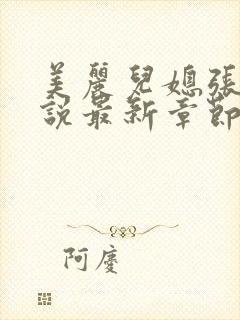 美麗兒媳張
說最新章節
阿慶